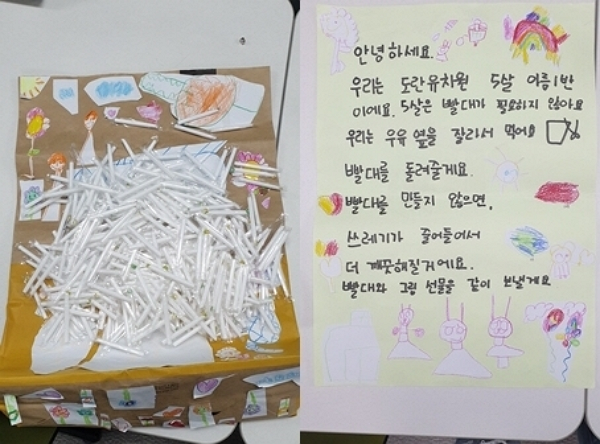 안녕하세요.
우리는 도란유치원 5살 여름1반
이에요. 5살은 빨대가 필요하지 않아요
우리는 우유 옆을 잘라서 먹어요
빨대를 돌려줄게요.
빨대를 만들지 않으면,
쓰레기가 줄어들어서
더 깨끗해질거에요.
빨대와 그림 선물을 같이 보낼게요